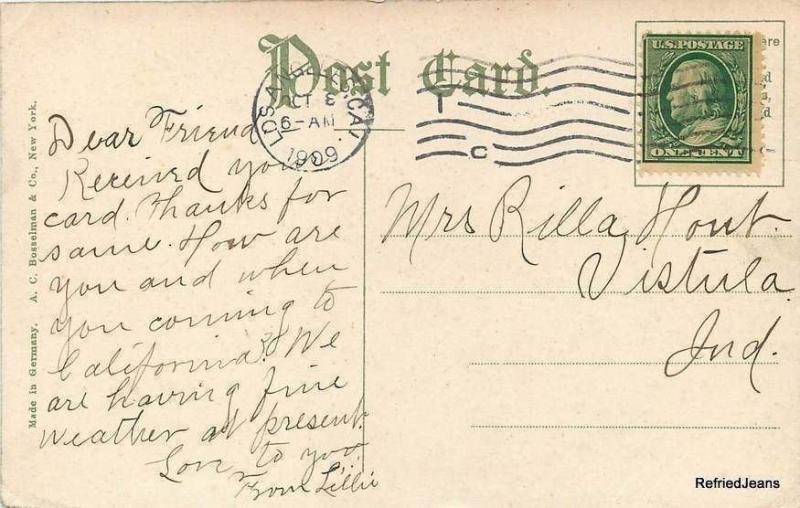 Post Card.
U.S. POSTAGE
ONE CENT
LOS ANGELES, CAL.
OCT 8
6-AM
1909
T
C
Dear Friend
Received your
card. Thanks for
same. How are
you and when
you coming to
California? We
are having fine
weather at present.
Love to you
From Lillie
Mrs Rilla Hout.
Vistula
Ind.
Made in Germany. A. C. Bosselman & Co., New York.
RefriedJeans